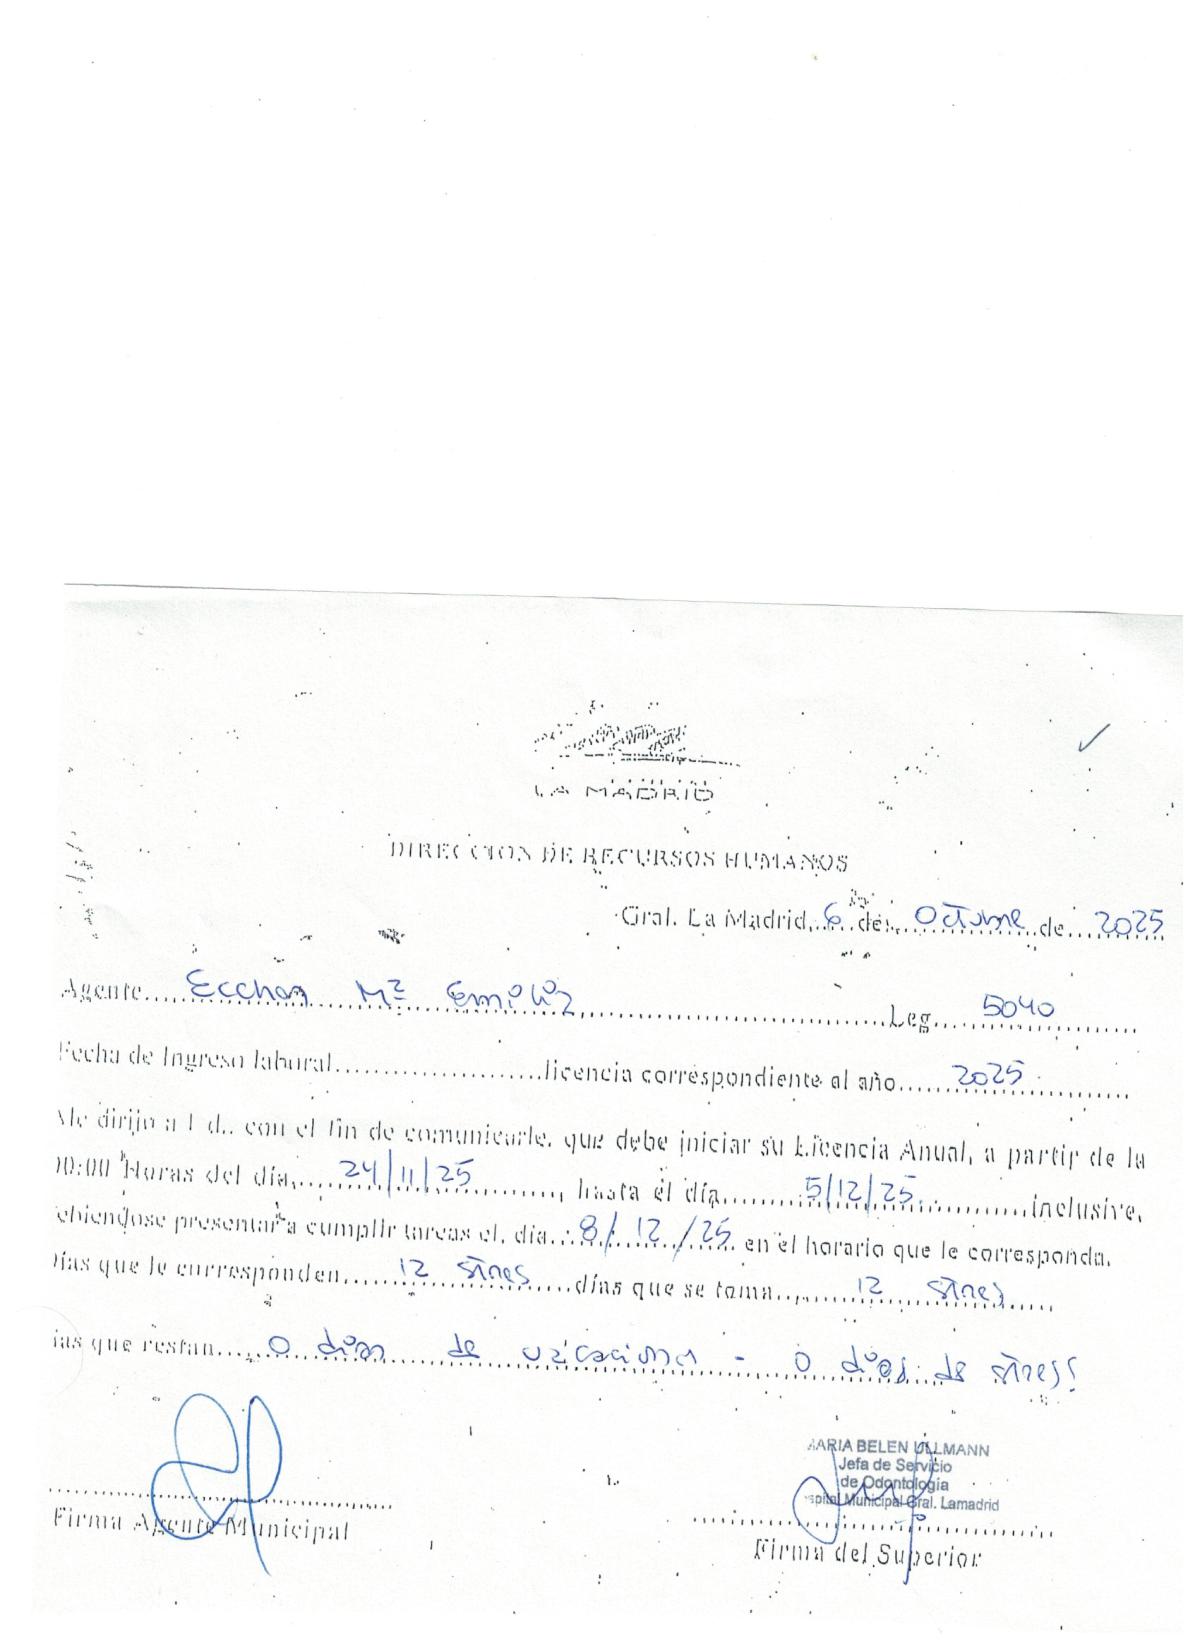 LA MADRID
DIRECCION DE RECURSOS HUMANOS
Gral. La Madrid, 6 de Octubre de 2025
Agente Ecchan Mª Emilia Leg. 5040
Fecha de Ingreso laboral licencia correspondiente al año 2025
Me dirijo a Ud., con el fin de comunicarle, que debe iniciar su Licencia Anual, a partir de la
00:00 Horas del día, 24/11/25, hasta el día 5/12/25 inclusive,
ebiendose presentar a cumplir tareas el, día 8/12/25 en el horario que le corresponda.
Días que le corresponden 12 stres días que se toma 12 stres
ias que restan 0 días de vacaciones - 0 días de stres!
MARIA BELEN ULLMANN
Jefa de Servicio
de Odontología
spital Municipal Gral. Lamadrid
Firma Agente Municipal
Firma del Superior